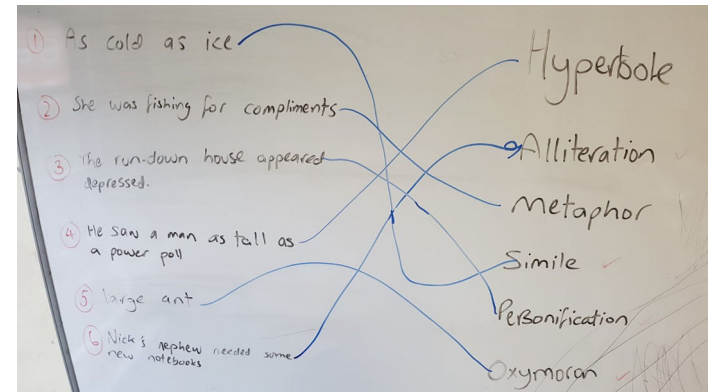 ① As cold as ice
② She was fishing for compliments
③ The run-down house appeared
depressed.
④ He saw a man as tall as
a power poll
⑤ large ant
⑥ Nick's nephew needed some
new notebooks
Hyperbole
Alliteration
Metaphor
Simile
Personification
Oxymoron